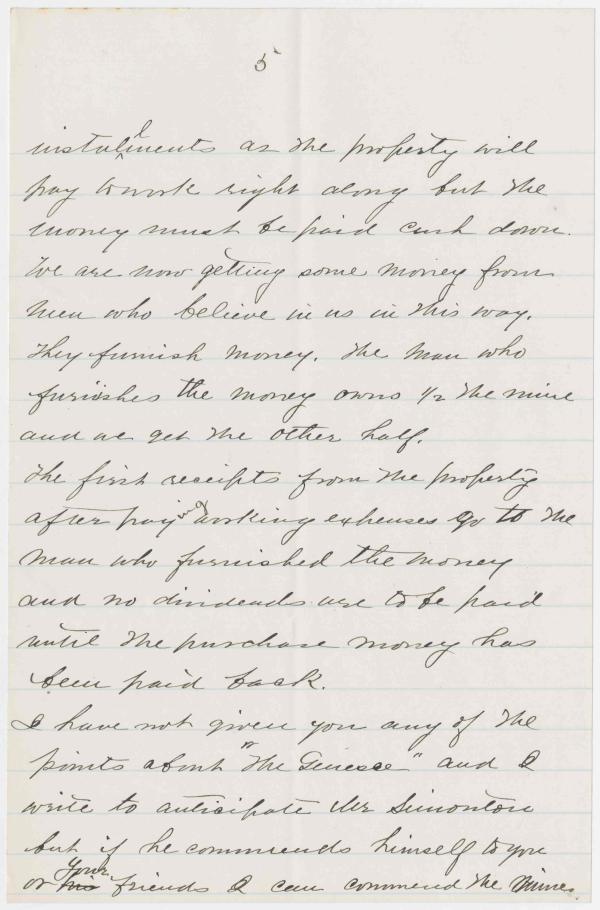 5
installments as the property will
pay to work right along but the
money must be paid cash down.
We are now getting some money from
men who believe in us in this way.
They furnish money. The man who
furnishes the money owns 1/2 the mine
and we get the other half.
The first receipts from the property
after paying working expenses go to the
man who furnished the money
and no dividends are to be paid
until the purchase money has
been paid back.
I have not given you any of the
points about "The Genesee" and I
write to anticipate Mr Simonton
but if he commends himself to you
or his your friends I can commend the mine.